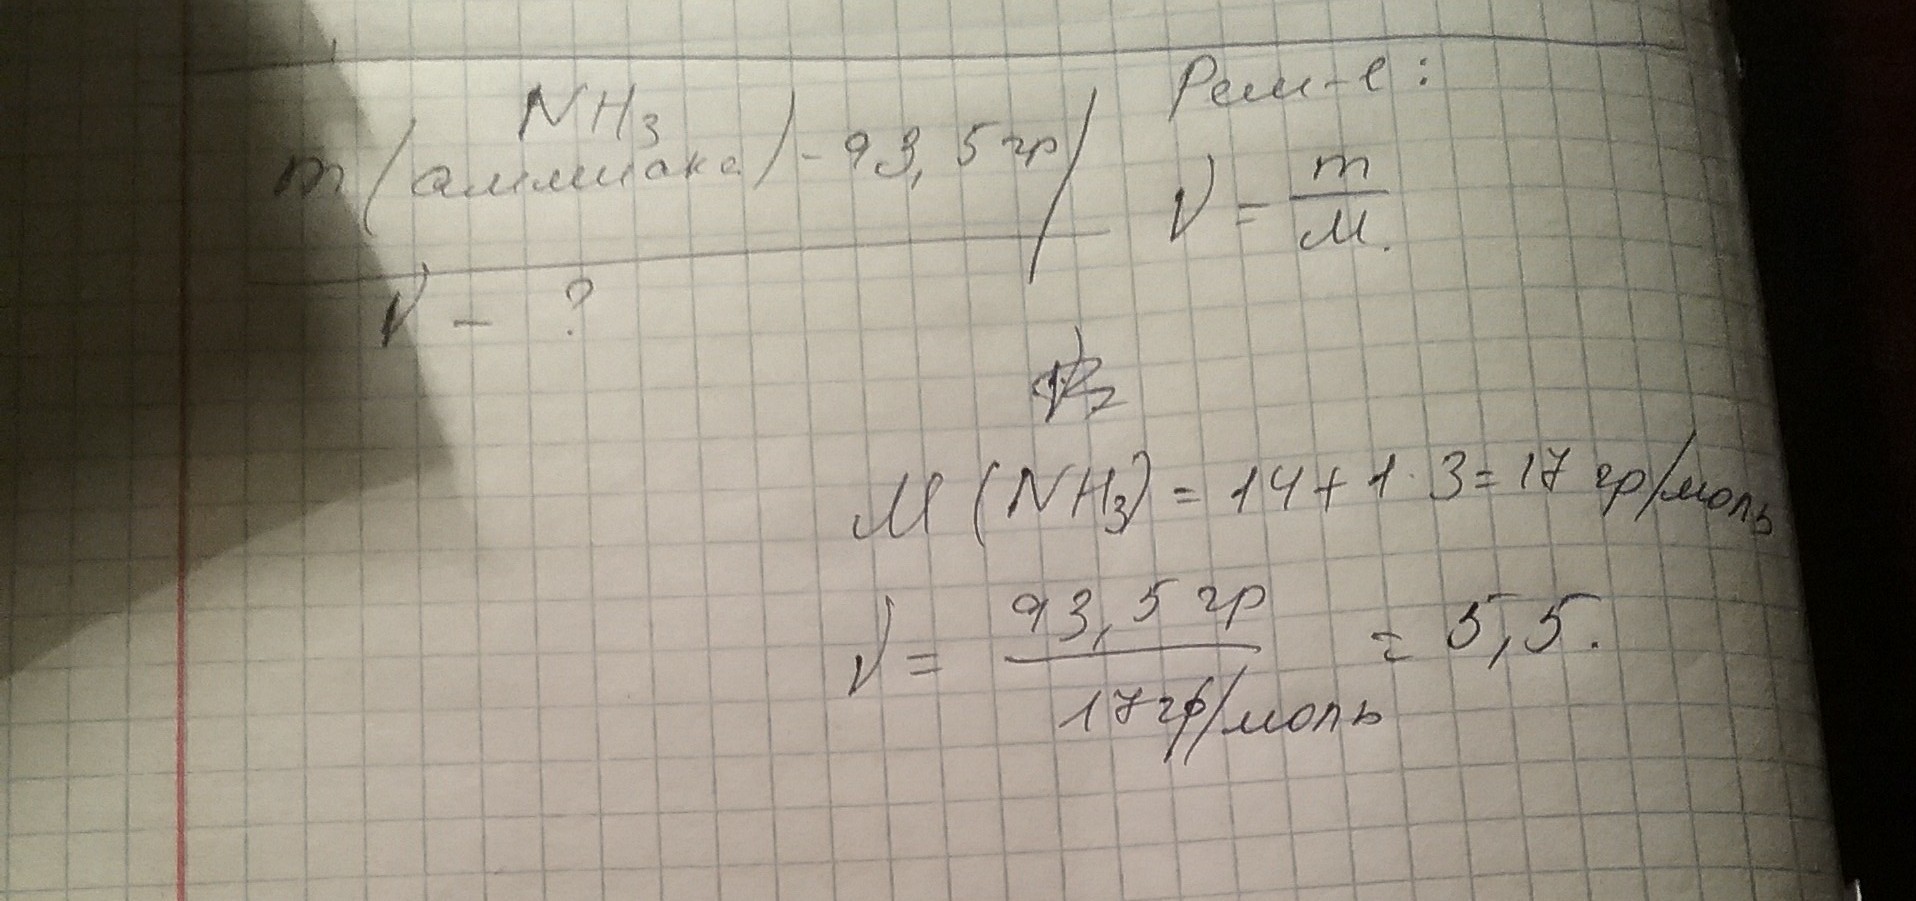 NH3
m (аммиака) - 93,5 гр
ν - ?
Реш-е:
ν = m
M.
M (NH3) = 14 + 1 · 3 = 17 гр/моль
ν = 93,5 гр = 5,5.
17 гр/моль